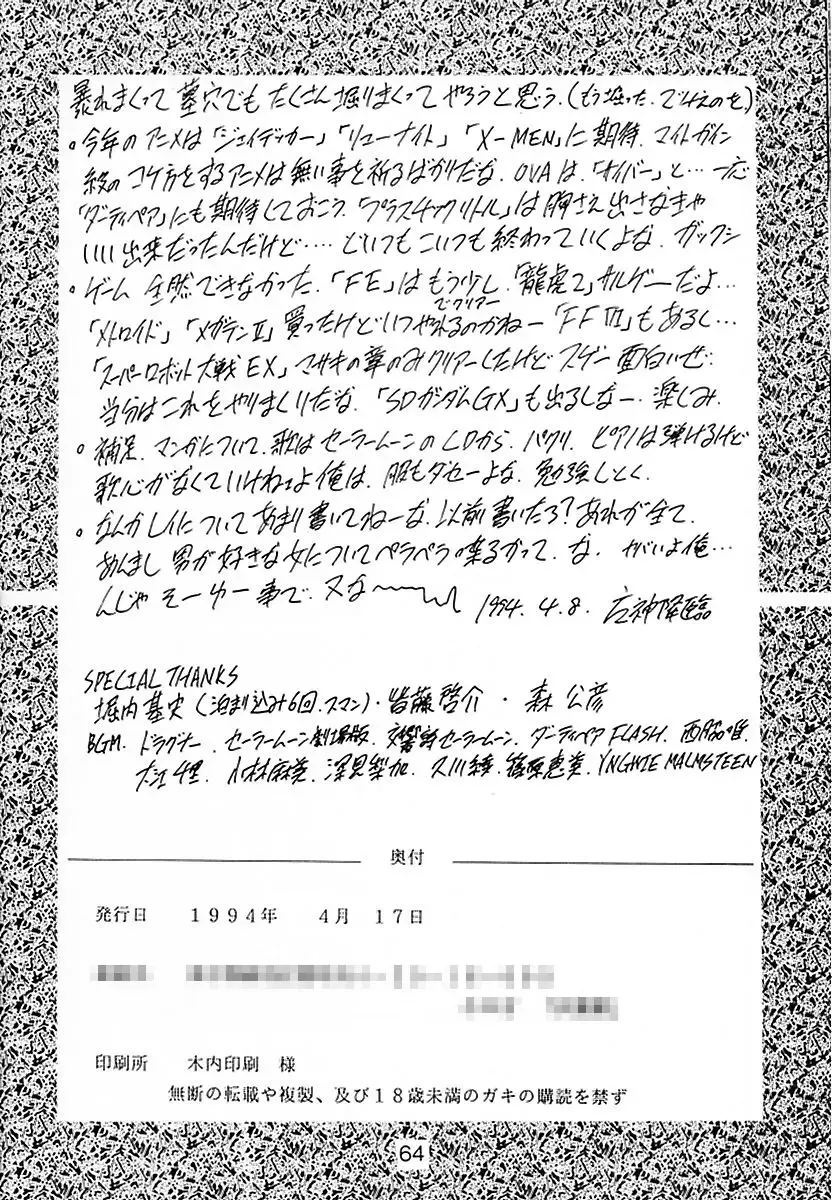 暴れまくって墓穴でもたくさん堀りまくってやろうと思う。(もう堀った。でけえのを)
。今年のアニメは「ジェイデッカー」「リューナイト」「X-MEN」に期待。マイトガイン
級のコケ方をするアニメは無い事を祈るばかりだな。OVAは、「ガイバー」と…一応
「ダーティペア」にも期待しておこう。「プラスチックリトル」は胸さえ出さなきゃ
いい出来だったんだけど…。どいつもこいつも終わっていくよな。ガックシ
。ゲーム 全然できなかった。「FE」はもう少し。「龍虎2」サルゲーだよ…
でクリアー
「メトロイド」「メガテンⅡ」買ったけどいつやれるのかねー「FFⅥ」もあるし…
「スーパーロボット大戦EX」マサキの章のみクリアーしたけどスゲー面白いぜ。
当分はこれをやりまくりだな。「SDガンダムGX」も出るしなー。楽しみ。
。補足。マンガについて。歌はセーラームーンのLDから。パクリ。ピアノは弾けるけど
歌心がなくていけねェよ俺は。服もダセーよな。勉強しとく。
。なんかレイについてあまり書いてねーな。以前書いたろ?あれが全て。
あんまし男が好きな女についてペラペラ喋るかって。な。ヤバいよ俺…
んじゃそーゆー事で。又な〜 1994.4.8. 右神降臨
SPECIAL THANKS
堀内基史(泊まり込み6回。スマン)・皆藤啓介・森公彦
BGM. ドラグナー. セーラームーン劇場版. 交響詩セーラームーン. ダーティペアFLASH. 西脇唯.
大江千里. 小林麻美. 深見梨加. 久川綾. 篠原恵美. YNGWIE MALMSTEEN
奥付
発行日 1994年 4月 17日
印刷所 木内印刷 様
無断の転載や複製、及び18歳未満のガキの購読を禁ず
64